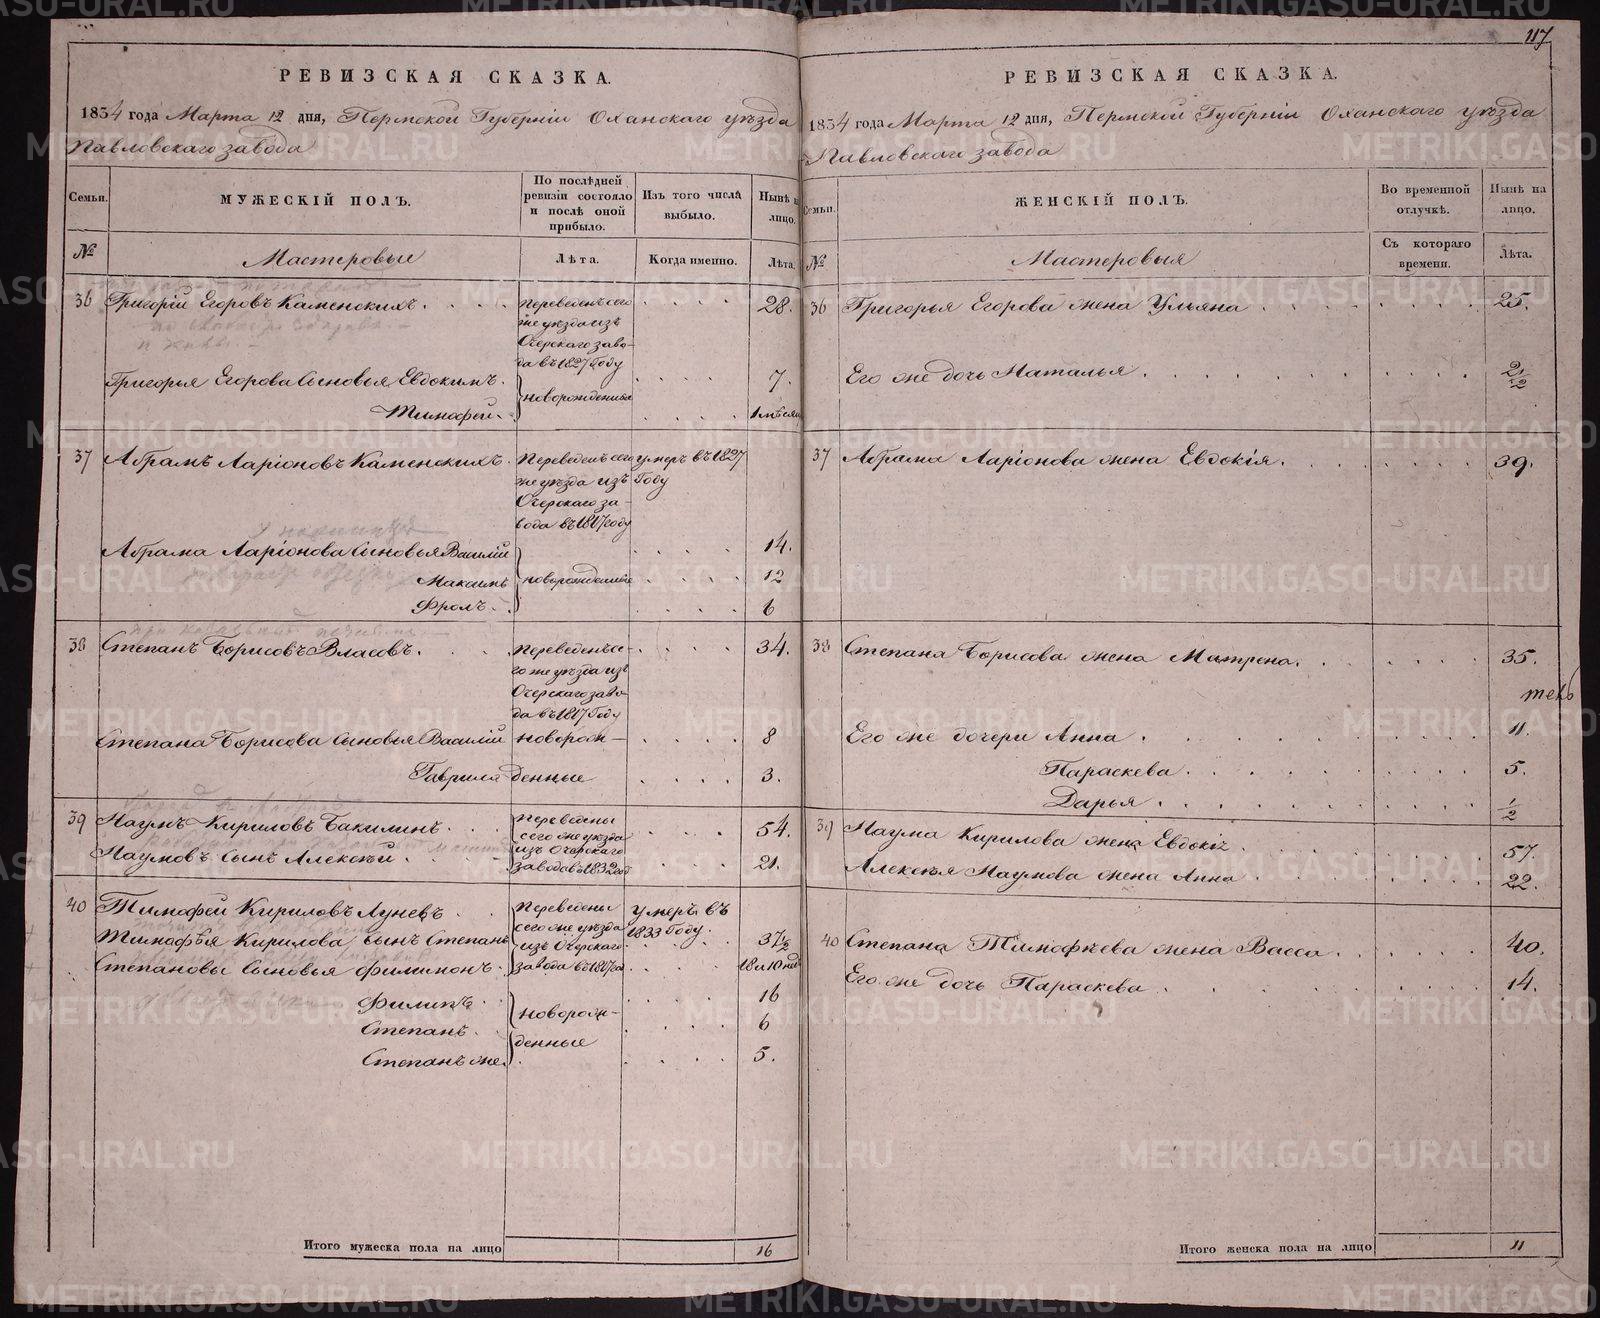 117
РЕВИЗСКАЯ СКАЗКА.
1834 года Марта 12 дня, Пермской Губерніи Оханскаго уѣзда
Павловскаго завода
Семьи.
МУЖЕСКІЙ ПОЛЪ.
По послѣдней ревизіи состояло и послѣ оной прибыло.
Изъ того числа выбыло.
Нынѣ на лицо.
№
Мастеровые
Лѣта.
Когда именно.
Лѣта.
36 Григорій Егоровъ Каменскихъ. Переведенъ сего 28.
же уѣзда изъ
Очерскаго заво-
да въ 1827 Году
Григорья Егорова Сыновья Евдокимъ. новорожденные 7.
Тимофей. 1 мѣсяц
37 Абрамъ Ларіоновъ Каменскихъ. Переведенъ сего умеръ въ 1827
же уѣзда изъ Году
Очерскаго за-
вода въ 1817 году
Абрама Ларіонова Сыновья Василій 14.
Максимъ новорожденные 12
Фролъ. 6
38 Степанъ Борисовъ Власовъ. Переведенъ се- 34.
го же уѣзда изъ
Очерскаго заво-
да въ 1817 Году
Степана Борисова Сыновья Василій новорож- 8
Гаврила денные 3.
39 Наумъ Кириловъ Бакилинъ. Переведены 54.
сего же уѣзда
Наумовъ сынъ Алексѣй. изъ Очерскаго 21.
завода въ 1832 год
40 Тимофей Кириловъ Луневъ. Переведены умеръ въ
сего же уѣзда 1833 Году.
Тимофѣя Кирилова сынъ Степанъ изъ Очерскаго 37 1/2
Степановы Сыновья Филимонъ. завода въ 1817 го 18 и 10 нед
Филипъ. новорож- 16
Степанъ. 6
денные
Степанъ же. 5.
Итого мужеска пола на лицо 16
РЕВИЗСКАЯ СКАЗКА.
1834 года Марта 12 дня, Пермской Губерніи Оханскаго уѣзда
Павловскаго завода
Семьи.
ЖЕНСКІЙ ПОЛЪ.
Во временной отлучкѣ.
Нынѣ на лицо.
№
Мастеровыя
Съ котораго времени.
Лѣта.
36 Григорья Егорова жена Ульяна 25.
Его же дочь Наталья. 2 1/2
37 Абрама Ларіонова жена Евдокія. 39.
38 Степана Борисова жена Матрена. 35.
Его же дочери Анна. 11.
Параскева. 5.
Дарья. 1/2
39 Наума Кирилова жена Евдокія. 57.
Алексѣя Наумова жена Анна 22.
40 Степана Тимофѣева жена Васса. 40.
Его же дочь Параскева. 14.
Итого женска пола на лицо 11
METRIKI.GASO-URAL.RU